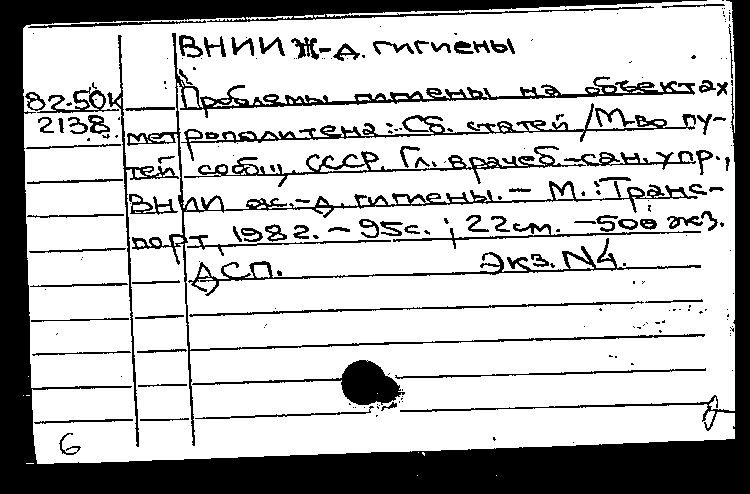 ВНИИ Ж-д. гигиены
82-50к Проблемы гигиены на объектах
2138 метрополитена: Сб. статей / М-во пу-
тей сообщ., СССР. Гл. врачеб.-сан. упр.,
ВНИИ ж.-д. гигиены. - М.: Транс-
порт, 1982. - 95с.; 22см. - 500 экз.
ДСП. Экз. N4.
6